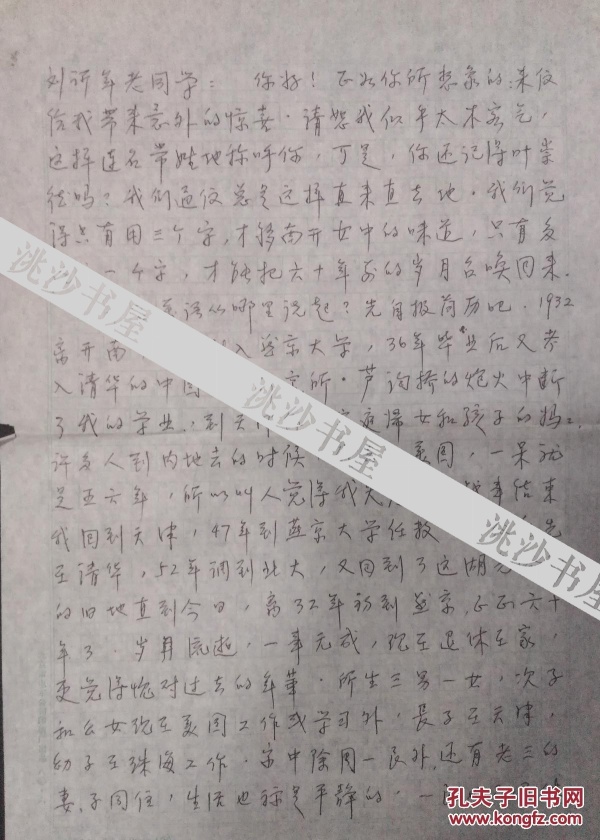 刘沂年老同学： 你好！正如你所想象的，来信
给我带来意外的惊喜．请恕我似乎太不客气，
这样连名带姓地称呼你，可是，你还记得叶崇
德吗？我们通信总是这样直来直去地．我们觉
得只有用三个字，才够南开女中的味道，只有多
一个字，才能把六十年前的岁月召唤回来．
话从哪里说起？先自报简历吧．1932
离开南 入燕京大学，36年毕业后又考
入清华的中国 究所．芦沟桥的炮火中断
了我的学业，到天津 家庭妇女和孩子的妈．
许多人到内地去的时候 美国，一呆就
是五六年，所以叫人觉得我 战争结束
我回到天津，47年到燕京大学任教 先
在清华，52年调到北大，又回到了这湖光
的旧地直到今日，离32年初到燕京，正正六十
年了．岁月流逝，一事无成，现在退休在家，
更觉得愧对过去的年华．所生三男一女，次子
和幺女现在美国工作或学习外，长子在天津，
幼子在珠海工作．家中除周一良外，还有老三的
妻、子同住，生活也称是平静的．一
洮沙书屋
洮沙书屋
洮沙书屋
孔夫子旧书网
www.kongfz.com